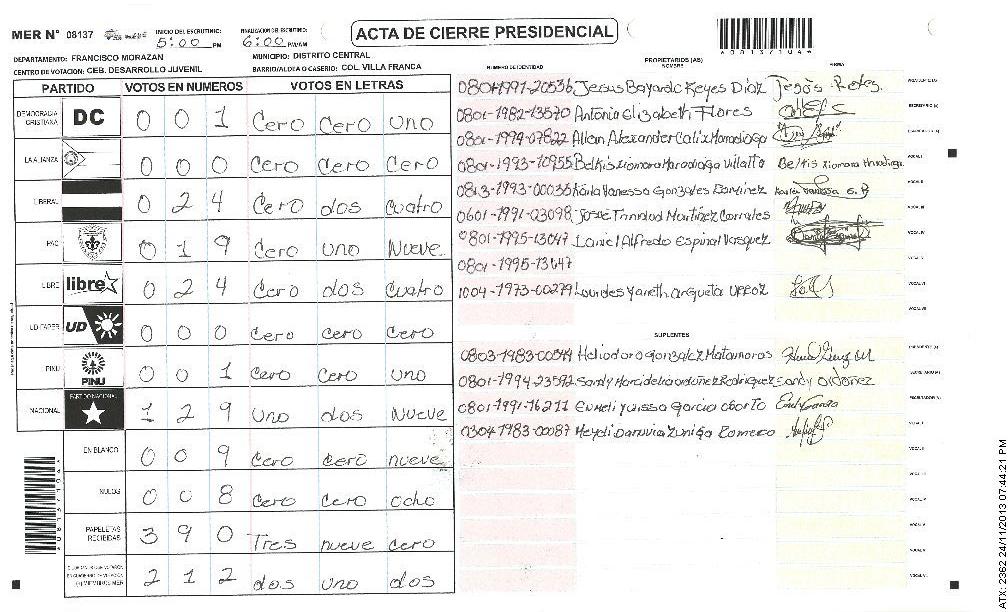 MER N° 08137
INICIO DEL ESCRUTINIO: 5:00 PM
FINALIZACION DEL ESCRUTINIO: 6:00 PM/AM
ACTA DE CIERRE PRESIDENCIAL
DEPARTAMENTO: FRANCISCO MORAZAN
MUNICIPIO: DISTRITO CENTRAL
CENTRO DE VOTACION: CEB. DESARROLLO JUVENIL
BARRIO/ALDEA O CASERIO: COL. VILLA FRANCA
PARTIDO VOTOS EN NUMEROS VOTOS EN LETRAS
DEMOCRACIA CRISTIANA DC 0 0 1 Cero Cero uno
LA ALIANZA 0 0 0 Cero Cero Cero
LIBERAL 0 2 4 Cero dos cuatro
PAC 0 1 9 Cero uno Nueve
LIBRE libre 0 2 4 Cero dos Cuatro
UD FAPER UD 0 0 0 Cero Cero Cero
PINU PINU 0 0 1 Cero Cero uno
NACIONAL PARTIDO NACIONAL 1 2 9 uno dos Nueve
EN BLANCO 0 0 9 Cero Cero nueve
NULOS 0 0 8 Cero Cero ocho
PAPELETAS RECIBIDAS 3 9 0 Tres nueve cero
2 1 2 dos uno dos
NÚMERO DE IDENTIDAD
PROPIETARIOS (AS)
NOMBRE
FIRMA
Jesus Bayardo Reyes Diaz
0801-1982-13570 Antonia Elizabeth Flores
0801-1994-07822 Allan Alexander Calix Maradiaga
0801-1993-10955 Belkis Xiomara Maradiaga Villalta Belkis Xiomara Maradiaga
0813-1993-00036 Karla Vanessa Gonzales
0601-1991-03098 Josue Trinidad Martinez Corrales
0801-1995-13647 Daniel Alfredo Espinal Vasquez
0801-1995-13647
1004-1973-00279 Lourdes Yaneth Argueta
SUPLENTES
Heliodoro Gonzalez Matamoros
0801-1994-23592 Sandy ordoñez Rodriguez Sandy ordoñez
0801-1991-16211 Garcia
0304-1983-00087 Heydi Zuniga Romero
ATX: 2362 24/11/2013 07:44:21 PM